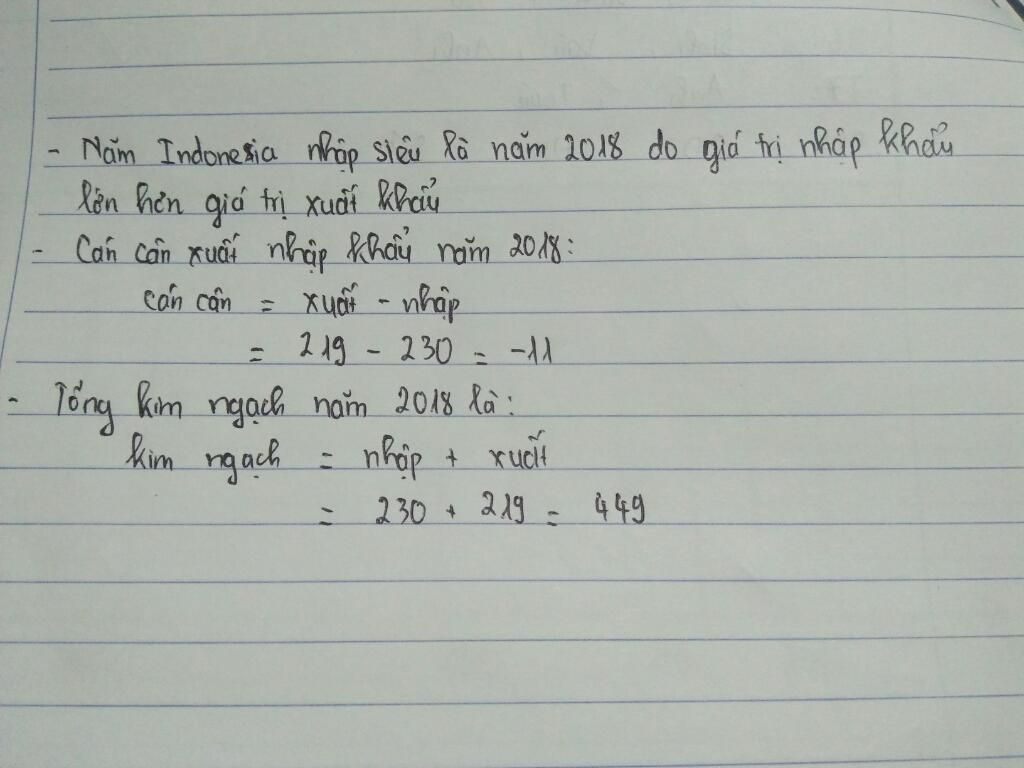 - Năm Indonesia nhập siêu là năm 2018 do giá trị nhập khẩu
lớn hơn giá trị xuất khẩu
- Cán cân xuất nhập khẩu năm 2018:
cán cân = xuất - nhập
= 219 - 230 = -11
- Tổng kim ngạch năm 2018 là:
kim ngạch = nhập + xuất
= 230 + 219 = 449